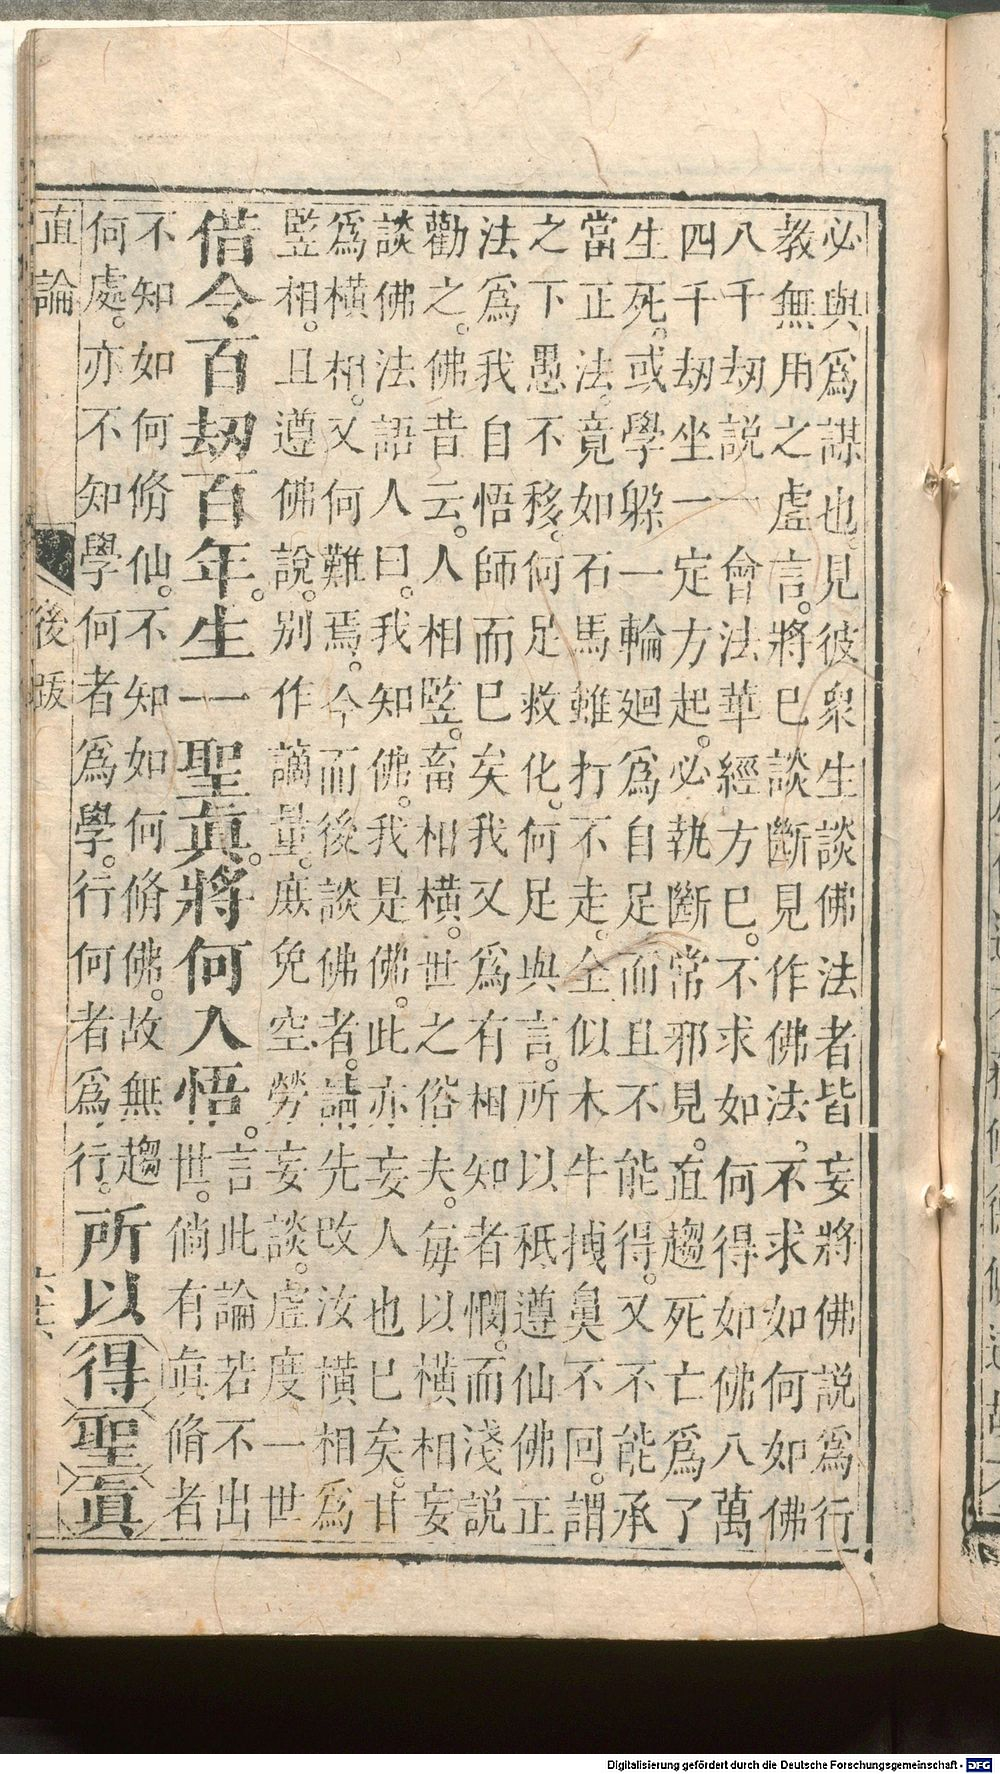 必與爲謀也見彼衆生談佛法者皆妄將佛說爲行
教無用之虛言。將巳談斷見作佛法。不求如何如佛
八千劫說一會法華經方巳。不求如何得如佛八萬
四千劫坐一定方起。必執斷常邪見。直趨死亡爲了
生死。或學躱一輪廻爲自足而且不能得。又不能承
當正法。竟如石馬雖打不走。全似木牛拽鼻不回。謂
之下愚不移。何足救化。何足與言。所以秪遵仙佛正
法爲我自悟師而巳矣我又爲有相知者憫。而淺說
勸之。佛昔云。人相監。畜相橫。世之俗夫。每以橫相妄
談佛法語人曰。我知佛。我是佛。此亦妄人也巳矣。甘
爲橫相。又何難焉。今而後談佛者。請先改汝橫相爲
監相。且遵佛說。別作謫量。庶免空勞妄談。虛度一世
借令百劫百年。生一聖眞。將何人悟。言此論若不出
世。倘有眞脩者
不知如何脩仙。不知如何脩佛。故無趨
何處。亦不知學何者爲學。行何者爲行。所以得聖眞
直論
後跋
Digitalisierung gefördert durch die Deutsche Forschungsgemeinschaft - DFG